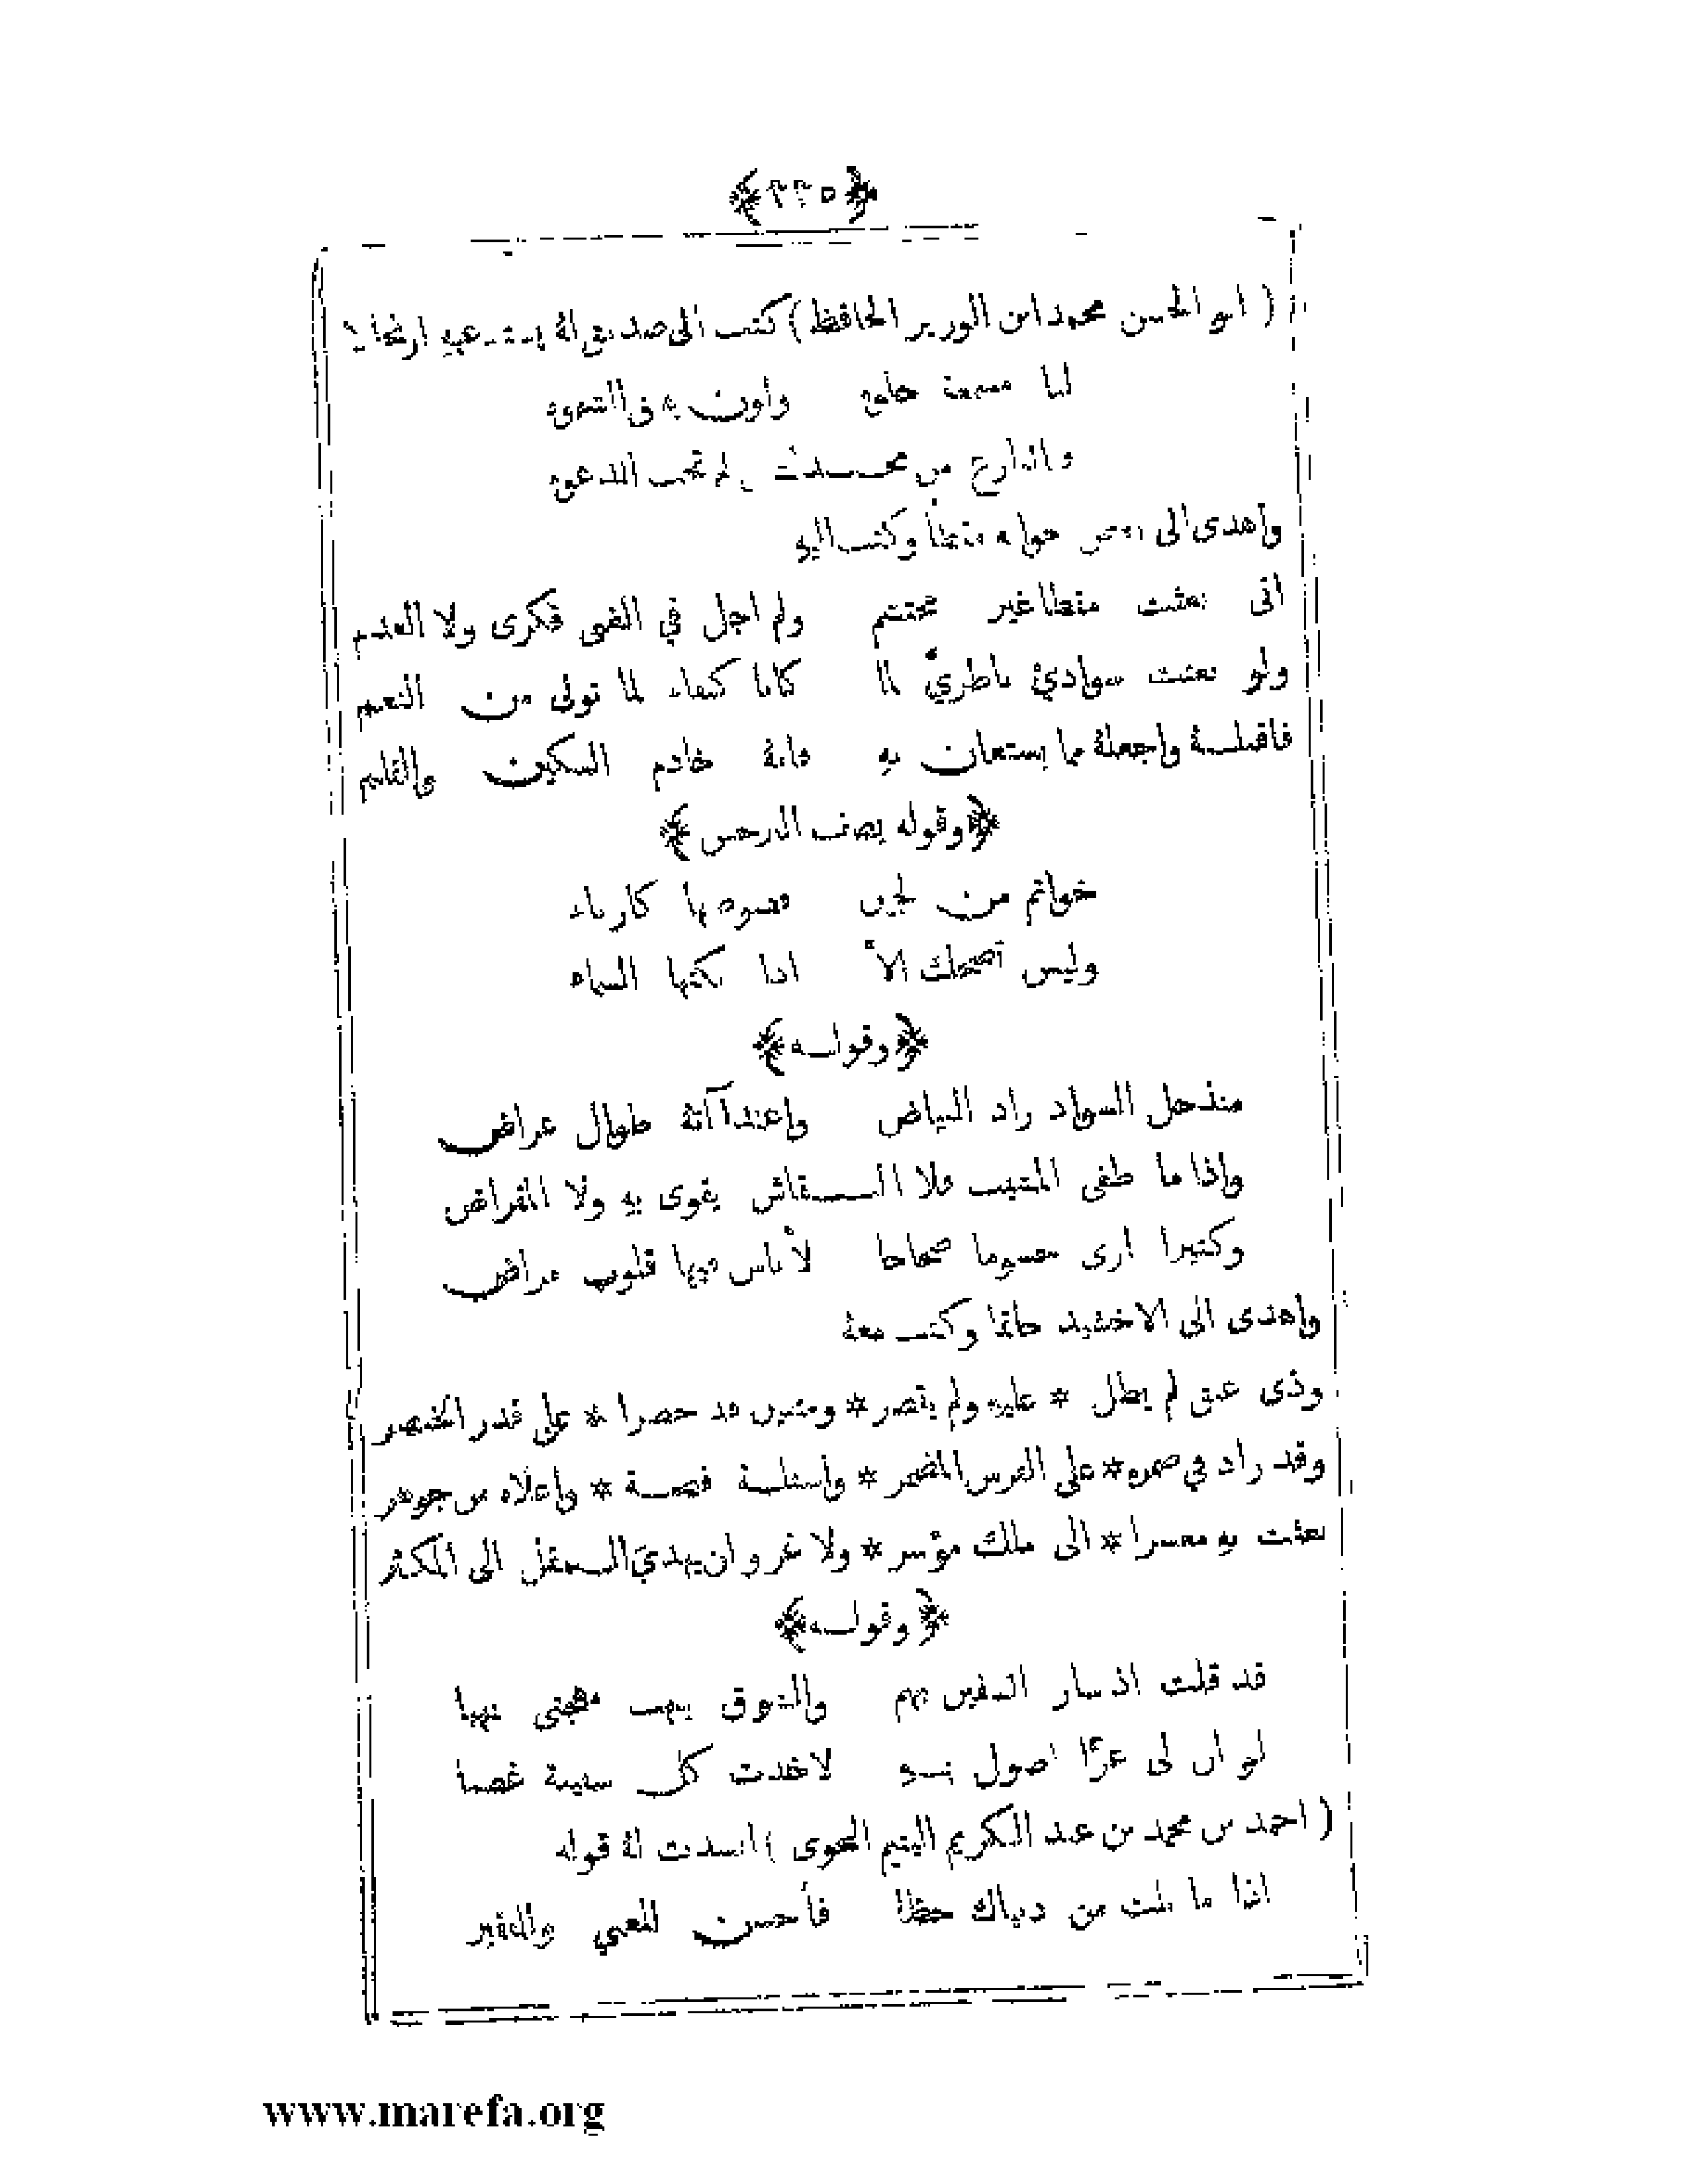 ﴿٣٣٥﴾
( ابو الحسن محمد ابن الوزير الحافظ) كتب الى صديق له يستدعيه ارتجالا
لنا حلوه
وان لم تجب الدعوه
واهدى الى بعض مقطا وكتب اليه
انى بعثت مقطا غير محتشم ولم اجل في الغنى فكرى ولا العدم
ولو بعثت سوادي ناظريّ لما كانا كفاء لما تولى من النعم
فاقبلـه واجعله مما يستعان به فانه خادم السكين والقلم
﴿وقوله يصف النرجس﴾
خواتم من لجين فصوصها كارباء
وليس تضحك الاّ اذا بكتها السماء
﴿وقولـه﴾
منذ حل السواد زاد البياض طوال عراض
واذا ما طغى المشيب فلا الـمـنقاش يقوى به ولا المقراض
وكثيرا ارى جسوما صحاحا لأناس فيها قلوب مراض
واهدى الى الاخشيد خاتما وكتب معه
وذى عنق لم يطل * عليه ولم يقصر * ومتنين قد حصرا * على قدر الخنصر
وقد زاد في ضمره * على الفرس المضمر * واسفلـه فضـة * واعلاه من جوهر
بعثت به معسرا * الى ملك مؤسر * ولا غرو ان يهدي الـمقل الى المكثر
﴿وقولـه﴾
قد قلت اذ سار السفين بهم والشوق ينهب مهجتى نهبا
لو ان لى عزّا اصول بـه لاخذت كل سفينة غصبا
( احمد بن محمد بن عبد الكريم اليتيم النحوى ) انشدت له قوله
اذا ما نلت من دنياك حظا فأحسن للغني والفقير
www.marefa.org